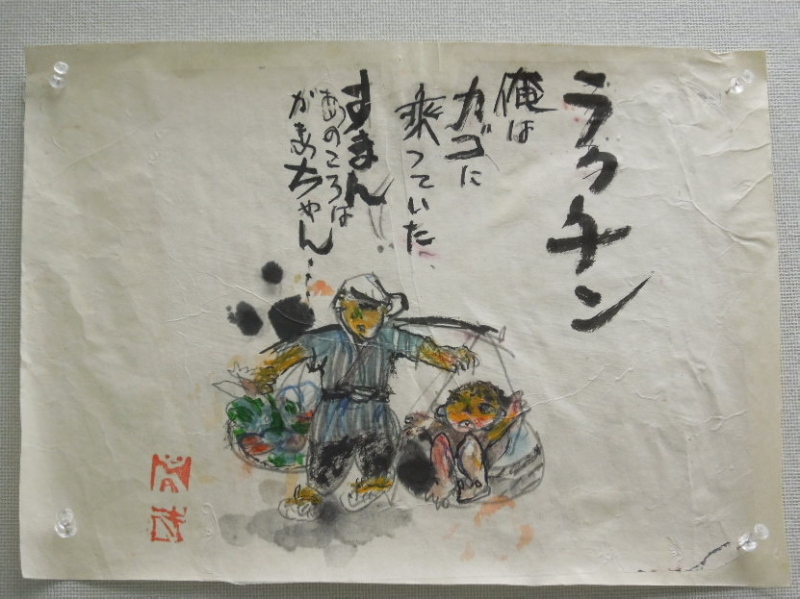 ラクチン
俺は
カゴに
乗っていた
すまん
あのころは
がまぁちゃん・・・